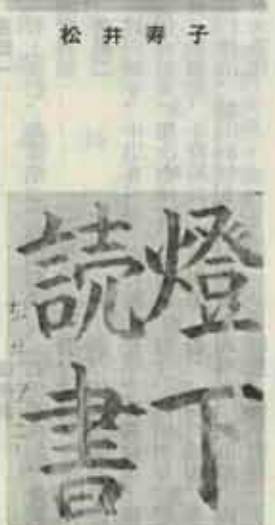 松井寿子
燈下
読書